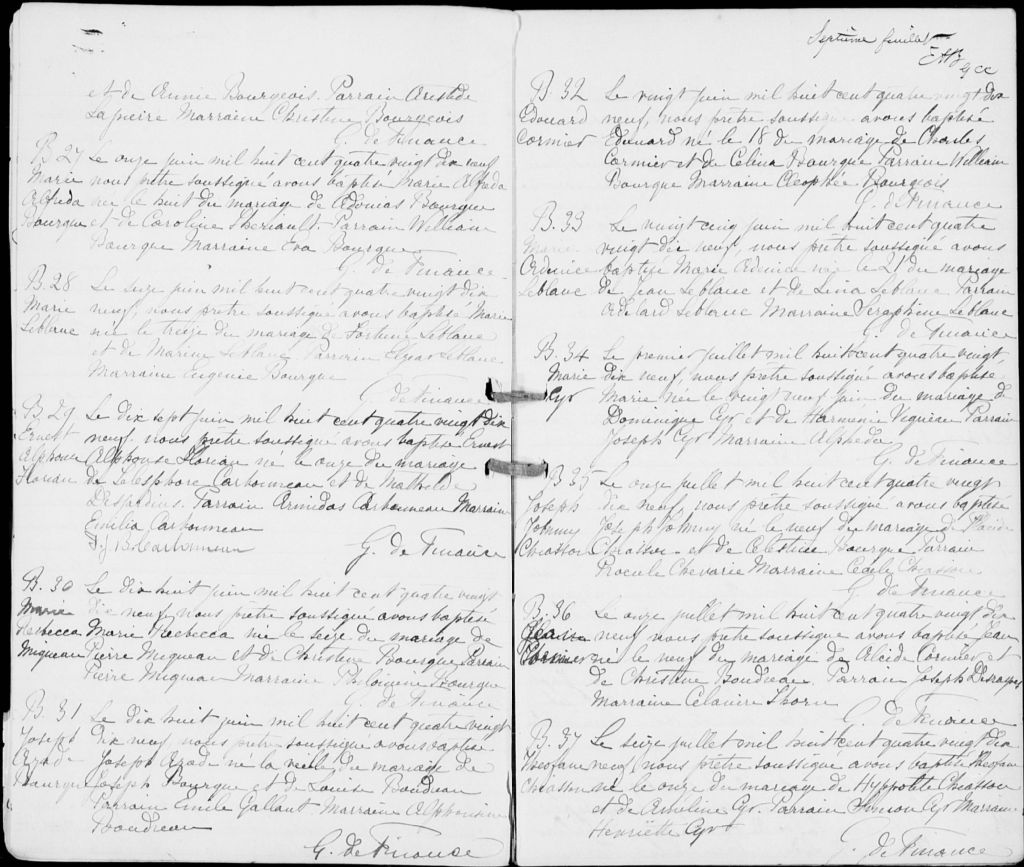 et de Annie Bourgeois. Parrain Aristide
Lapierre Marraine Christine Bourgeois
G. de Finance
B. 27 Le onze juin mil huit cent quatre vingt dix neuf
Marie nous prêtre soussigné avons baptisé Marie Alféda
Alféda née le huit du mariage de Adonias Bourque
Bourque et de Caroline Theriault. Parrain William
Bourque Marraine Eva Bourque
G. de Finance
B. 28 Le seize juin mil huit cent quatre vingt dix
Marie neuf, nous prêtre soussigné avons baptisé Marie
Leblanc née le treize du mariage de Fortuné Leblanc
et de Marine Leblanc Parrain Elzear Leblanc
Marraine Eugenie Bourque
G. de Finance
B. 29 Le dix sept juin mil huit cent quatre vingt dix
Ernest neuf. nous prêtre soussigné avons baptisé Ernest
Alphonse Alphonse Florian né le onze du mariage
Florian de Télesphore Carbonneau et de Mathilde
Desjardins. Parrain Armidas Carbonneau Marraine
Emilia Carbonneau
Carbonneau G. de Finance
B. 30 Le dix huit juin mil huit cent quatre vingt
Marie dix neuf, nous prêtre soussigné avons baptisé
Rebecca Marie Rebecca née le seize du mariage de
Miqueau Pierre Miqueau et de Christine Bourque Parrain
Pierre Miqueau Marraine Philomène Bourque
G. de Finance
B. 31 Le dix huit juin mil huit cent quatre vingt
Joseph dix neuf nous prêtre soussigné avons baptisé
Azade Joseph Azade né la veille du mariage de
Bourque Joseph Bourque et de Louise Boudreau
Parrain Emile Gallant Marraine Alphonsine
Boudreau
G. de Finance
Septième feuillet
B. 32 Le vingt juin mil huit cent quatre vingt dix
Edouard neuf, nous prêtre soussigné avons baptisé
Cormier Edouard né le 18 du mariage de Charles
Cormier et de Célina Bourque Parrain William
Bourque Marraine Cléophée Bourgeois
G. de Finance
B. 33 Le vingt cinq juin mil huit cent quatre
Marie vingt dix neuf, nous prêtre soussigné avons
Ardenice baptisé Marie Ardenice née le 21 du mariage
Leblanc de Jean Leblanc et de Livia Leblanc Parrain
Adélard Leblanc Marraine Séraphine Leblanc
G. de Finance
B. 34 Le premier juillet mil huit cent quatre vingt
Marie dix neuf, nous prêtre soussigné avons baptisé
Cyr Marie née le vingt neuf juin du mariage de
Dominique Cyr et de Harmenie Vigneau Parrain
Joseph Cyr Marraine Alpheda
G. de Finance
B. 35 Le onze juillet mil huit cent quatre vingt
Joseph dix neuf, nous prêtre soussigné avons baptisé
Johnny Joseph Johnny né le neuf du mariage de Placide
Chiasson Chiasson et de Célestine Bourque Parrain
Procule Chevarie Marraine Cécile Chiasson
G. de Finance
B. 36 Le onze juillet mil huit cent quatre vingt dix
neuf nous prêtre soussigné avons baptisé Jean
Cormier né le neuf du mariage de Alcide Cormier et
de Christine Boudreau. Parrain Joseph Desraspes
Marraine Clavire Thorn
G. de Finance
B. 37 Le seize juillet mil huit cent quatre vingt dix
Théofane neuf, nous prêtre soussigné avons baptisé Théofane
Chiasson né le onze du mariage de Hyppolite Chiasson
et de Asveline Cyr. Parrain Simeon Cyr Marraine
Henriette Cyr
G. de Finance